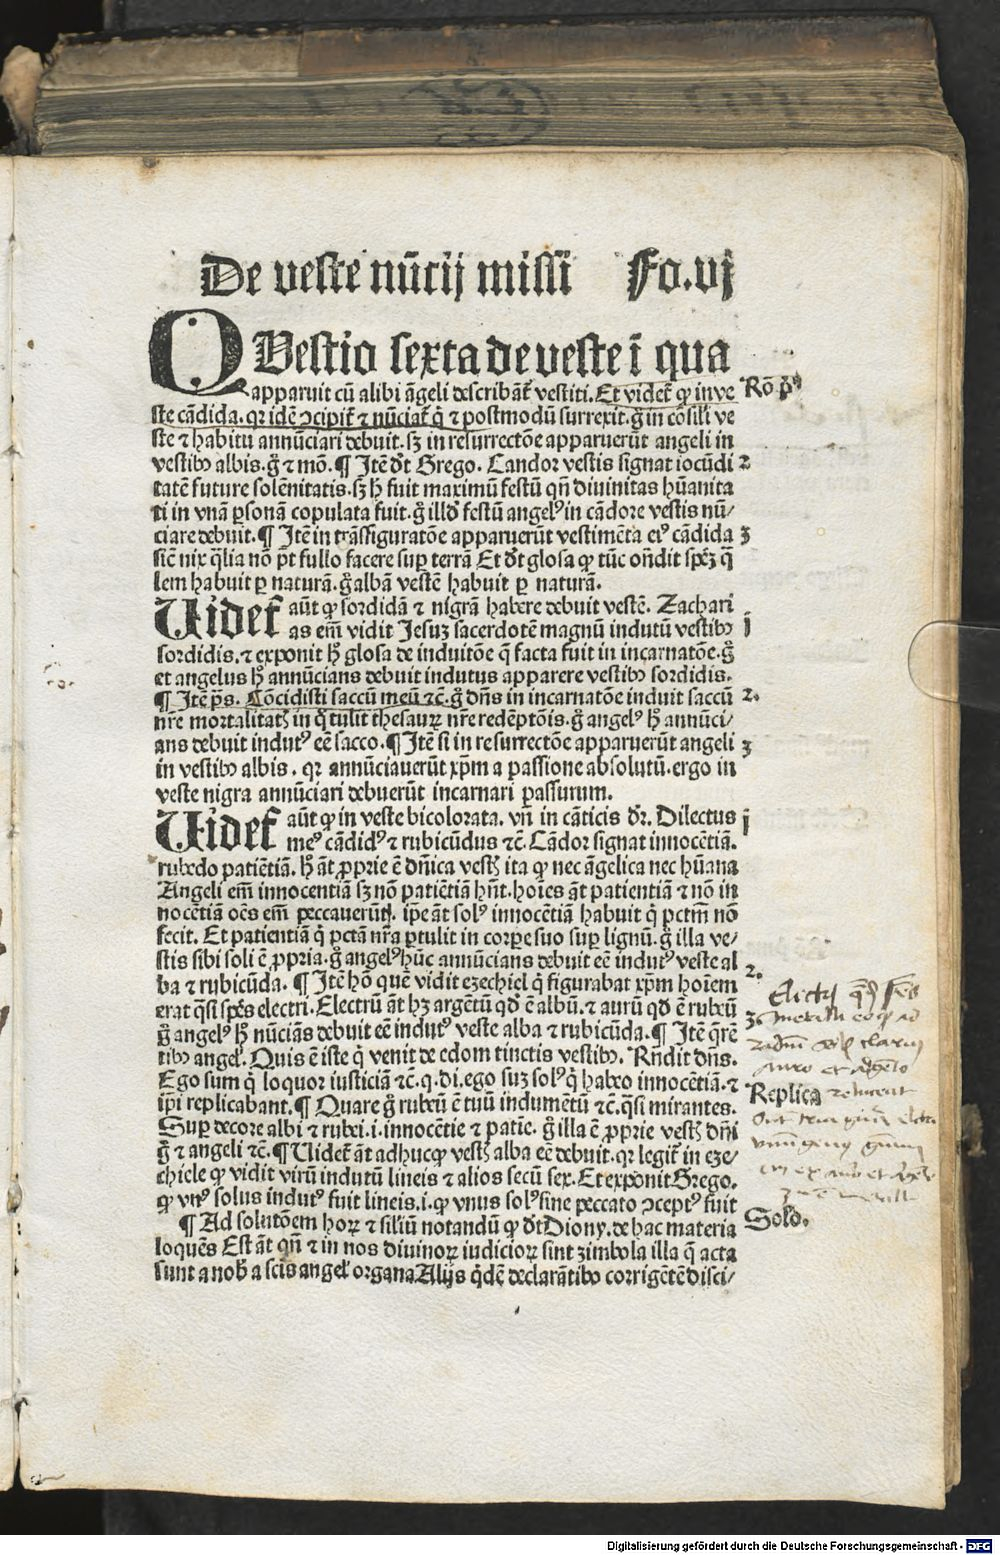 De veste nũcij missi Fo.vj
QVestio sexta de veste ĩ qua
apparuit cũ alibi ãgeli describãt᷑ vestiti. Et videt᷑ ꝙ in ve Rõ pͥᵃ
ste cãdida. qꝛ idẽ ↄcipit᷑ ⁊ nũciat᷑ q̇ ⁊ postmodũ surrexit. g̊ in cõsili ve
ste ⁊ habitu annũciari debuit. sꝫ in resurrectõe apparuerũt angeli in
vestibꝰ albis. g̊ ⁊ mõ. ¶ Itẽ dt̃ Grego. Candor vestis signat iocũdi 2
tatẽ future solẽnitatis. sꝫ h̃ fuit maximũ festũ qñ diuinitas hũanita
ti in vnã ꝑsonã copulata fuit. g̊ illd̃ festũ angelꝰ in cãdore vestis nũ/
ciare debuit. ¶ Itẽ in trãsfiguratõe apparuerũt vestimẽta eiꝰ cãdida 3
sic̃ nix q̃lia nõ pt̃ fullo facere suꝑ terrã Et dt̃ glosa ꝙ tũc oñdit spẽꝫ q̃
lem habuit ꝑ naturã. g̊ albã vestẽ habuit ꝑ naturã.
Uidet᷑ aũt ꝙ sordidã ⁊ nigrã habere debuit vestẽ. Zachari
as em̃ vidit Jesuꝫ sacerdotẽ magnũ indutũ vestibꝰ j
sordidis. ⁊ exponit h̃ glosa de induitõe q̃ facta fuit in incarnatõe. g̊
et angelus h̃ annũcians debuit indutus apparere vestibꝰ sordidis.
¶ Itẽ p̃s. Cõcidisti saccũ meũ ⁊c̃. g̊ dñs in incarnatõe induit saccũ 2.
nr̃e mortalitatꝭ in q̊ tulit thesauꝝ nr̃e redẽptõis. g̊ angelꝰ h̃ annũci/
ans debuit indutꝰ eẽ sacco. ¶ Itẽ si in resurrectõe apparuerũt angeli 3
in vestibꝰ albis. qꝛ annũciauerũt xp̃m a passione absolutũ. ergo in
veste nigra annũciari debuerũt incarnari passurum.
Uidet᷑ aũt ꝙ in veste bicolorata. vñ in cãticis dr̃. Dilectus j
meꝰ cãdidꝰ ⁊ rubicũdus ⁊c̃. Cãdor signat innocẽtiã.
rubedo patiẽtiã. h̃ ãt ꝓprie ẽ dñica vestꝭ ita ꝙ nec ãgelica nec hũana
Angeli em̃ innocentiã sꝫ nõ patiẽtiã hñt. hoĩes ãt patientiã ⁊ nõ in
nocẽtiã oẽs em̃ peccauerũt. ip̃e ãt solꝰ innocẽtiã habuit q̇ pctm̃ nõ
fecit. Et patientiã q̇ pctã nr̃a ꝑtulit in corꝑe suo suꝑ lignũ. g̊ illa ve/
stis sibi soli ẽ ꝓpria. g̊ angelꝰ hũc annũcians debuit eẽ indutꝰ veste al
ba ⁊ rubicũda. ¶ Itẽ hõ quẽ vidit ezechiel q̇ figurabat xp̃m hoĩem 2.
erat q̃si spẽs electri. Electrũ ãt hꝫ argẽtũ qd̃ ẽ albũ. ⁊ aurũ qd̃ ẽ rubeũ
g̊ angelꝰ h̃ nũciãs debuit eẽ indutꝰ veste alba ⁊ rubicũda. ¶ Itẽ q̃rẽ 3.
tibꝰ angel̃. Quis ẽ iste q̇ venit de edom tinctis vestibꝰ. Rñdit dñs.
Ego sum q̇ loquor iusticiã ⁊c̃. q. di. ego suꝫ solꝰ q̇ habeo innocẽtiã. ⁊
ip̃i replicabant. ¶ Quare g̊ rubeũ ẽ tuũ indumẽtũ ⁊c̃. q̃si mirantes. Replica
Suꝑ decore albi ⁊ rubei. i. innocẽtie ⁊ patiẽ. g̊ illa ẽ ꝓprie vestꝭ dñi
g̊ ⁊ angeli ⁊c̃. ¶ Uidet᷑ ãt adhuc ꝙ vestꝭ alba eẽ debuit. qꝛ legit᷑ in eze/
chiele ꝙ vidit virũ indutũ lineis ⁊ alios secũ sex. Et exponit Grego.
ꝙ vnꝰ solus indutꝰ fuit lineis. i. ꝙ vnus solꝰ sine peccato ↄceptꝰ fuit
¶ Ad solutõem hoꝝ ⁊ siliũ notandũ ꝙ dt̃ Diony. de hac materia Solõ.
loquẽs Est ãt qñ ⁊ in nos diuinoꝝ iudicioꝝ sint zimbola illa q̃ acta
sunt a nob̃ a scis angel̃ organa. Alijs q̇dẽ declarãtibꝰ corrigẽtẽ disci/
Digitalisierung gefördert durch die Deutsche Forschungsgemeinschaft - DFG